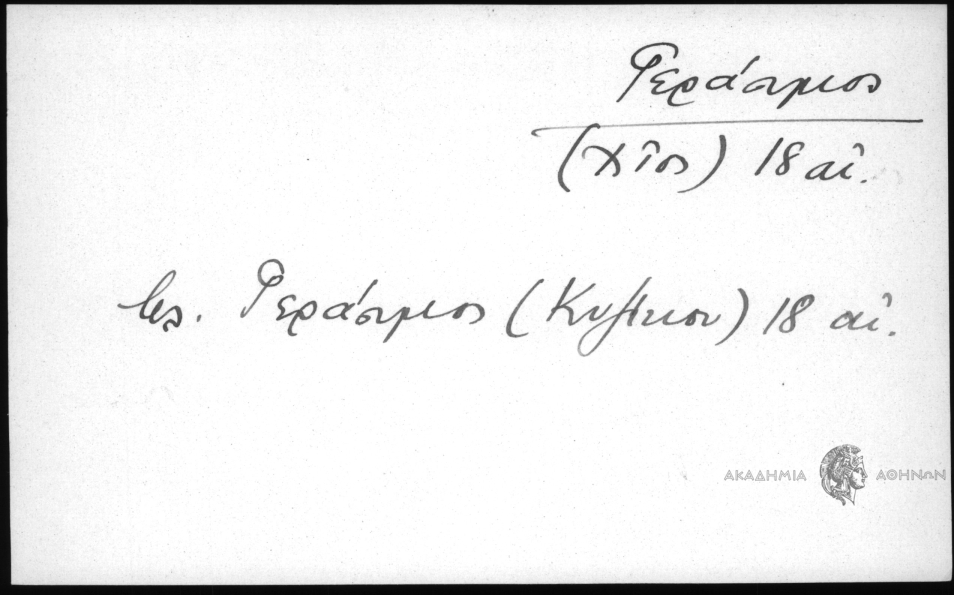 Γεράσιμος
(Χῖος) 18 αἰ.
βλ. Γεράσιμος (Κυζίκου) 18 αἰ.
ΑΚΑΔΗΜΙΑ ΑΘΗΝΩΝ